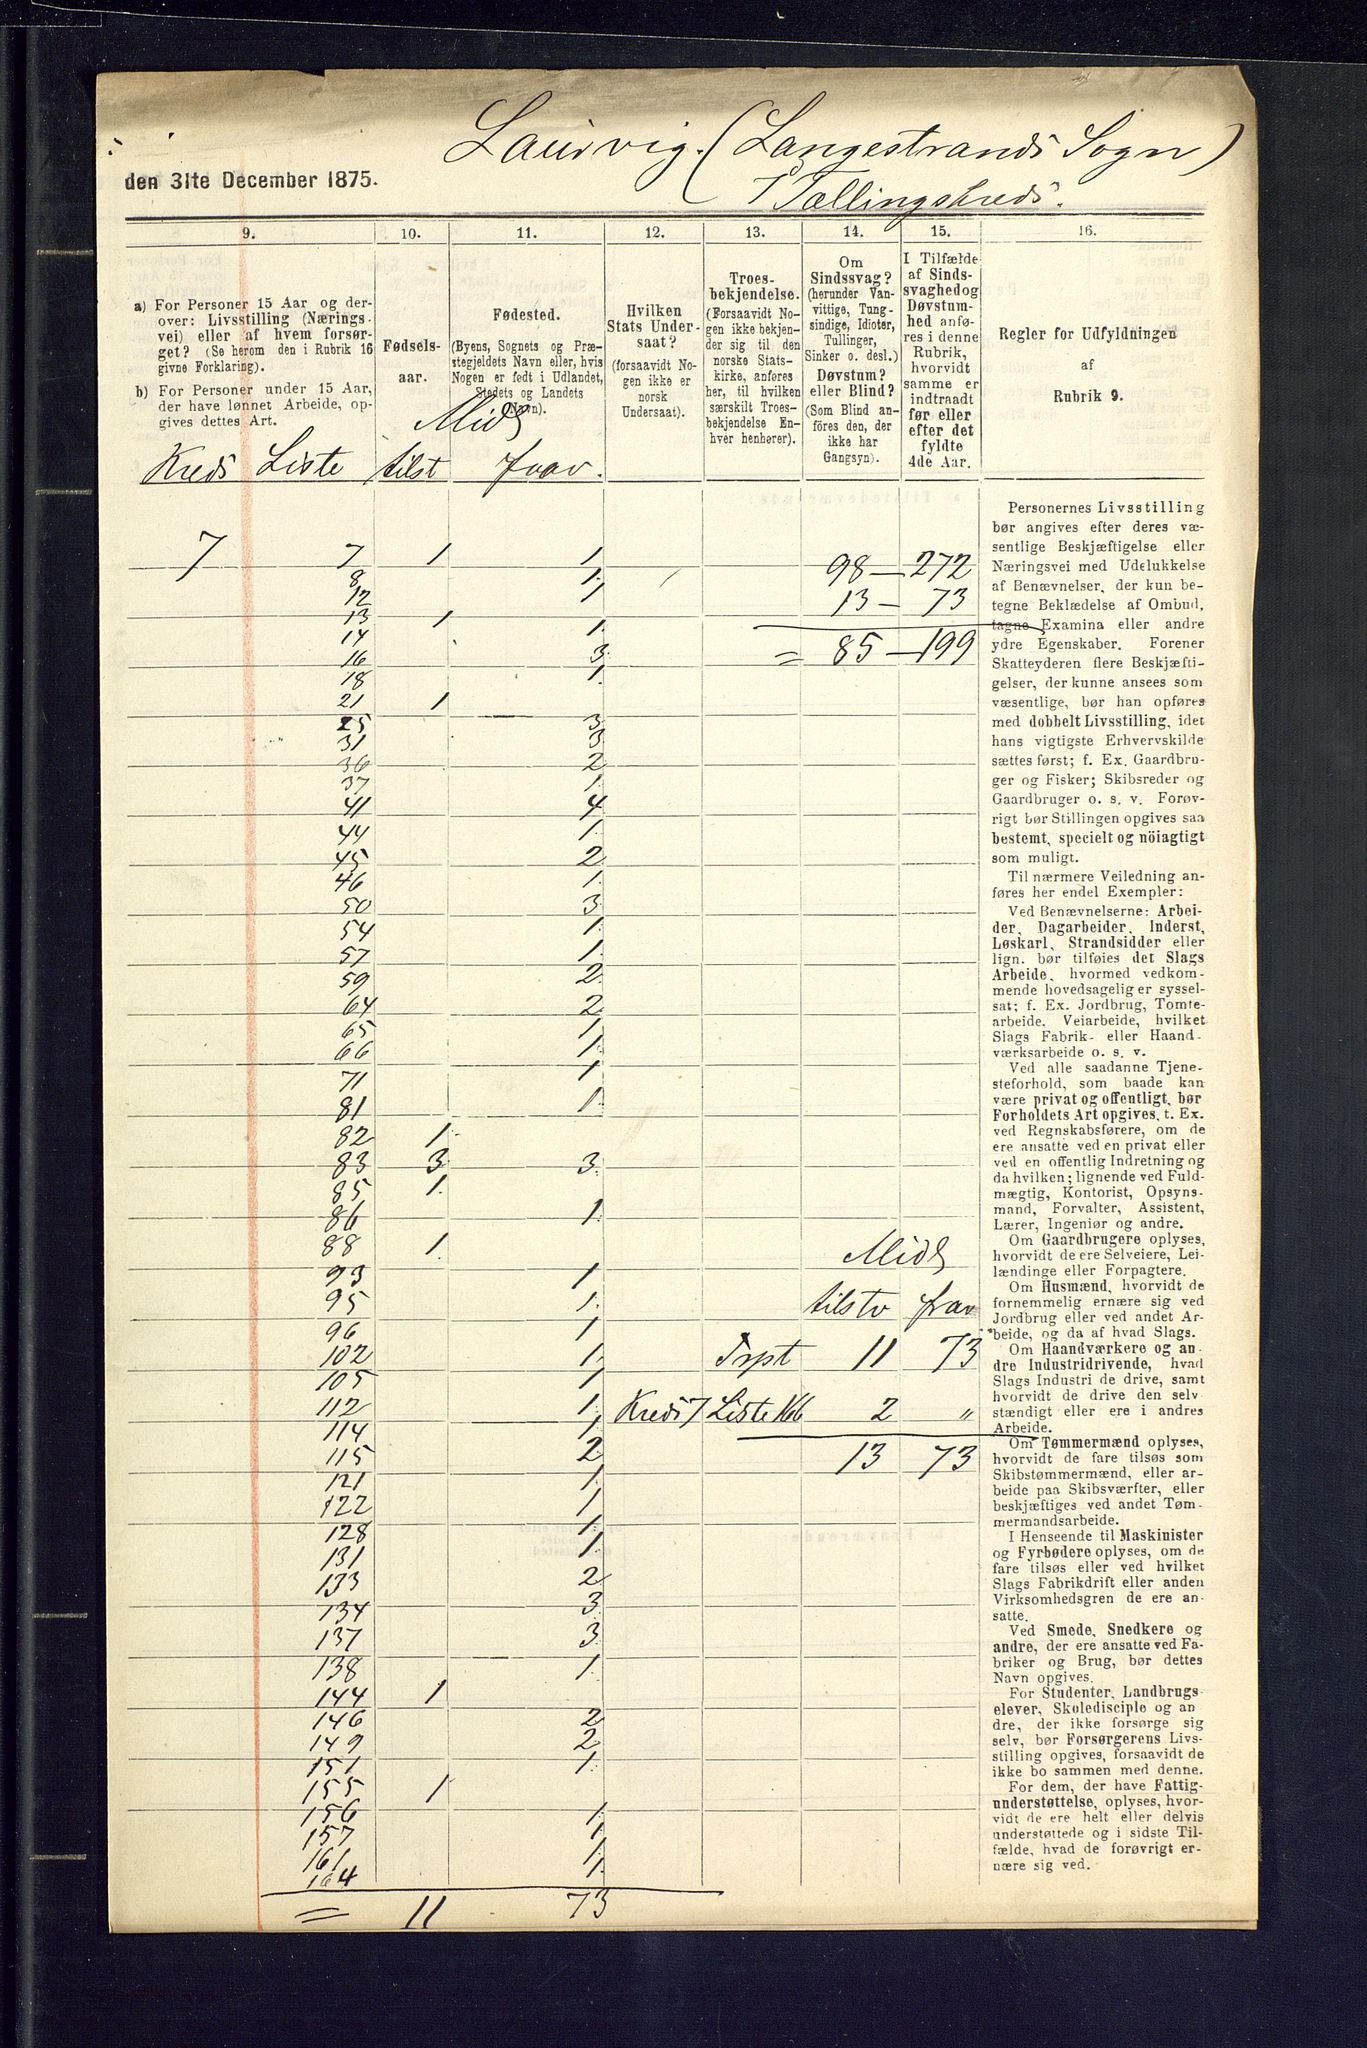 Laurvig. (Langestrands Sogn)
den 31te December 1875.
7 Tællingskreds.
9.
10.
11.
12.
13.
14.
15.
16.
a) For Personer 15 Aar og der-
over: Livsstilling (Nærings-
vei) eller af hvem forsør-
get? (Se herom den i Rubrik 16
givne Forklaring).
b) For Personer under 15 Aar,
der have lønnet Arbeide, op-
gives dettes Art.
Fødsels-
aar.
Fødested.
(Byens, Sognets og Præ-
stegjeldets Navn eller, hvis
Nogen er født i Udlandet,
Stedets og Landets
Navn).
Hvilken
Stats Under-
saat?
(forsaavidt No-
gen ikke er
norsk
Undersaat).
Troes-
bekjendelse.
(Forsaavidt No-
gen ikke bekjen-
der sig til den
norske Stats-
kirke, anføres
her, til hvilken
særskilt Troes-
bekjendelse En-
hver henhører).
Om
Sindssvag?
(herunder Van-
vittige, Tung-
sindige, Idioter,
Tullinger,
Sinker o. desl.)
Døvstum?
eller Blind?
(Som Blind an-
föres den, der
ikke har
Gangsyn).
I Tilfælde
af Sinds-
svaghed og
Døvstum-
hed anfø-
res i denne
Rubrik,
hvorvidt
samme er
indtraadt
før eller
efter det
fyldte
4de Aar.
Regler for Udfyldningen
af
Rubrik 9.
Midl
Kreds Liste tilst frav.
7 7 1 1
8 1
12 1
13 1
14 1
16 3
18 1
21 1
25 3
31 3
36 2
37 1
41 4
44 1
45 2
46 1
50 3
54 1
57 1
59 2
64 2
65 1
66 1
71 1
81 1
82 1
83 3 3
85 1
86 1
88 1
93 1
95 1
96 1
102 1
105 1
112 1
114 1
115 2
121 1
122 1
128 1
131 1
133 2
134 3
137 3
138 1
144 1
146 2
149 2
151 1
155 1
156 1
157 1
161 1
164 1
= 11 73
98 — 272
13 — 73
= 85 — 199
Midl
tilstv frav
Trspt 11 73
Kreds 7 Liste 166 2 "
13 73
Personernes Livsstilling
bør angives efter deres væ-
sentlige Beskjæftigelse eller
Næringsvei med Udelukkelse
af Benævnelser, der kun be-
tegne Beklædelse af Ombud,
tagne Examina eller andre
ydre Egenskaber. Forener
Skatteyderen flere Beskjæfti-
gelser, der kunne ansees som
væsentlige, bør han opføres
med dobbelt Livsstilling, idet
hans vigtigste Erhvervskilde
sættes først; f. Ex. Gaardbru-
ger og Fisker; Skibsreder og
Gaardbruger o. s. v. Forøv-
rigt bør Stillingen opgives saa
bestemt, specielt og nöiagtigt
som muligt.
Til nærmere Veiledning an-
føres her endel Exempler:
Ved Benævnelserne: Arbei-
der, Dagarbeider, Inderst,
Løskarl, Strandsidder eller
lign. bør tilføies det Slags
Arbeide, hvormed vedkom-
mende hovedsagelig er syssel-
sat; f. Ex. Jordbrug, Tomte-
arbeide, Veiarbeide, hvilket
Slags Fabrik- eller Haand-
værksarbeide o. s. v.
Ved alle saadanne Tjene-
steforhold, som baade kan
være privat og offentligt, bør
Forholdets Art opgives, t. Ex.
ved Regnskabsførere, om de
ere ansatte ved en privat eller
ved en offentlig Indretning og
da hvilken; lignende ved Fuld-
mægtig, Kontorist, Opsyns-
mand, Forvalter, Assistent,
Lærer, Ingeniør og andre.
Om Gaardbrugere oplyses,
hvorvidt de ere Selveiere, Lei-
lændinge eller Forpagtere.
Om Husmænd, hvorvidt de
fornemmelig ernære sig ved
Jordbrug eller ved andet Ar-
beide, og da af hvad Slags.
Om Haandværkere og an-
dre Industridrivende, hvad
Slags Industri de drive, samt
hvorvidt de drive den selv-
stændigt eller ere i andres
Arbeide.
Om Tømmermænd oplyses,
hvorvidt de fare tilsøs som
Skibstømmermænd, eller ar-
beide paa Skibsværfter, eller
beskjæftiges ved andet Tøm-
mermandsarbeide.
I Henseende til Maskinister
og Fyrbødere oplyses, om de
fare tilsøs eller ved hvilket
Slags Fabrikdrift eller anden
Virksomhedsgren de ere an-
satte.
Ved Smede, Snedkere og
andre, der ere ansatte ved Fa-
briker og Brug, bør dettes
Navn opgives.
For Studenter, Landbrugs-
elever, Skoledisciple og an
dre, der ikke forsørge sig
selv, bør Forsørgerens Livs-
stilling opgives, forsaavidt de
ikke bo sammen med denne.
For dem, der have Fattig-
understøttelse, oplyses, hvor-
vidt de ere helt eller delvis
understøttede og i sidste Til-
fælde, hvad de forøvrigt er-
nære sig ved.